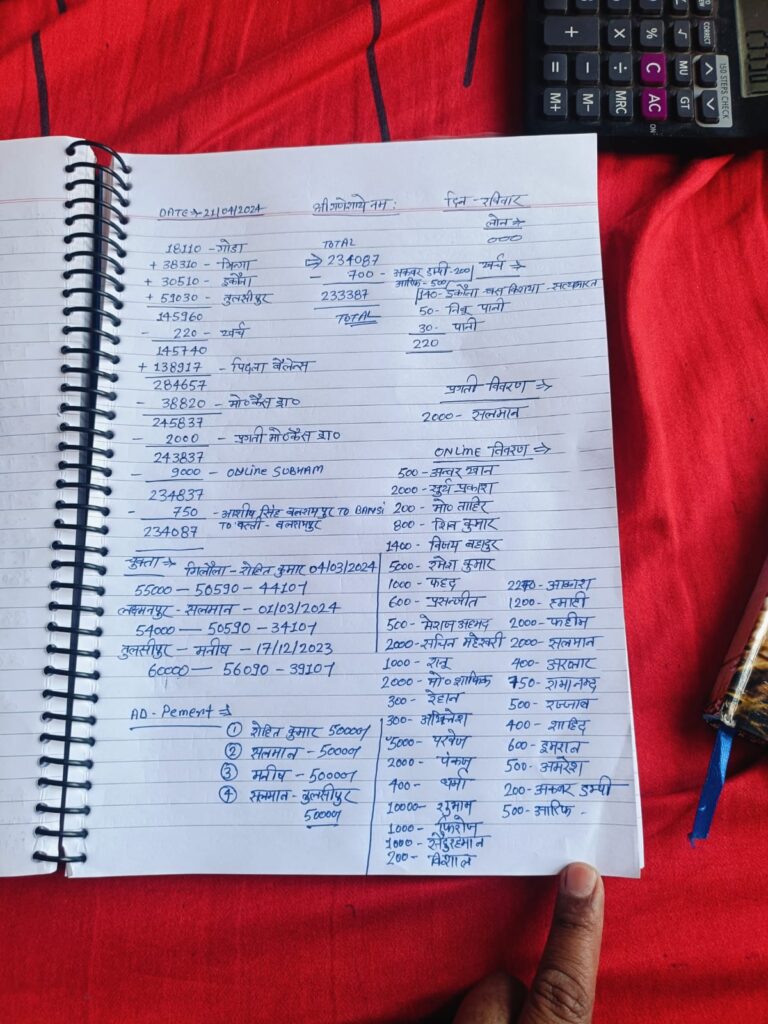 DATE → 21/04/2024 श्री गणेशाये नमः दिन - रविवार
18110 - गोंडा
+ 38310 - भिनगा
+ 30510 - इकौना
+ 59030 - तुलसीपुर
145960
- 220 - खर्च
145740
+ 138917 - पिछला बैलेन्स
284657
- 38820 - मो०कैस ड्रा०
245837
- 2000 - प्रगती मो०कैस ड्रा०
243837
- 9000 - ONLINE SUBHAM
234837
- 750 - आशीष सिंह बलरामपुर TO BANSI
234087 TO बस्ती - बलरामपुर
TOTAL
⇒ 234087
- 700 - अकबर डम्पी - 200/ आरिफ - 500/
233387
TOTAL
लोन →
000
खर्च →
140 - इकौना बस किराया - सत्यभारत
50 - निबू पानी
30 - पानी
220
प्रगती विवरण ⇒
2000 - सलमान
ONLINE विवरण ⇒
500 - अनवर खान
2000 - सुर्य प्रकाश
200 - मो० ताहिर
800 - शिव कुमार
1400 - विजय बहादुर
5000 - रमेश कुमार
1000 - फहद
600 - प्रसन्जीत
500 - मेराज अहमद
2000 - सचिन महेस्वरी
1000 - राजू
2000 - मो० शाफिक
300 - रेहान
300 - अभिनेश
5000 - परवेज
2000 - पंकज
400 - धर्मा
10000 - शुभम
1000 - फिरोज
1000 - सैदुरहमान
200 - विशाल
2270 - आकाश
1200 - हमादी
2000 - फहीम
2000 - सलमान
400 - अरबाट
750 - रामानन्द
500 - रज्जाब
400 - शाहिद
600 - इमरान
500 - अमरेश
200 - अकबर डम्पी
500 - आरिफ -
चुक्ता → गिलौला - रोहित कुमार 04/03/2024
55000 - 50590 - 4410/
लक्ष्मनपुर - सलमान - 01/03/2024
54000 - 50590 - 3410/
तुलसीपुर - मनीष - 17/12/2023
60000 - 56090 - 3910/
AD - Pement ⇒
① रोहित कुमार 5000/
② सलमान - 5000/
③ मनीष - 5000/
④ सलमान - तुलसीपुर
5000/
CORRECT
+ × % √
150 STEPS CHECK
= - ÷ C MU
M+ M- MRC AC GT
ON